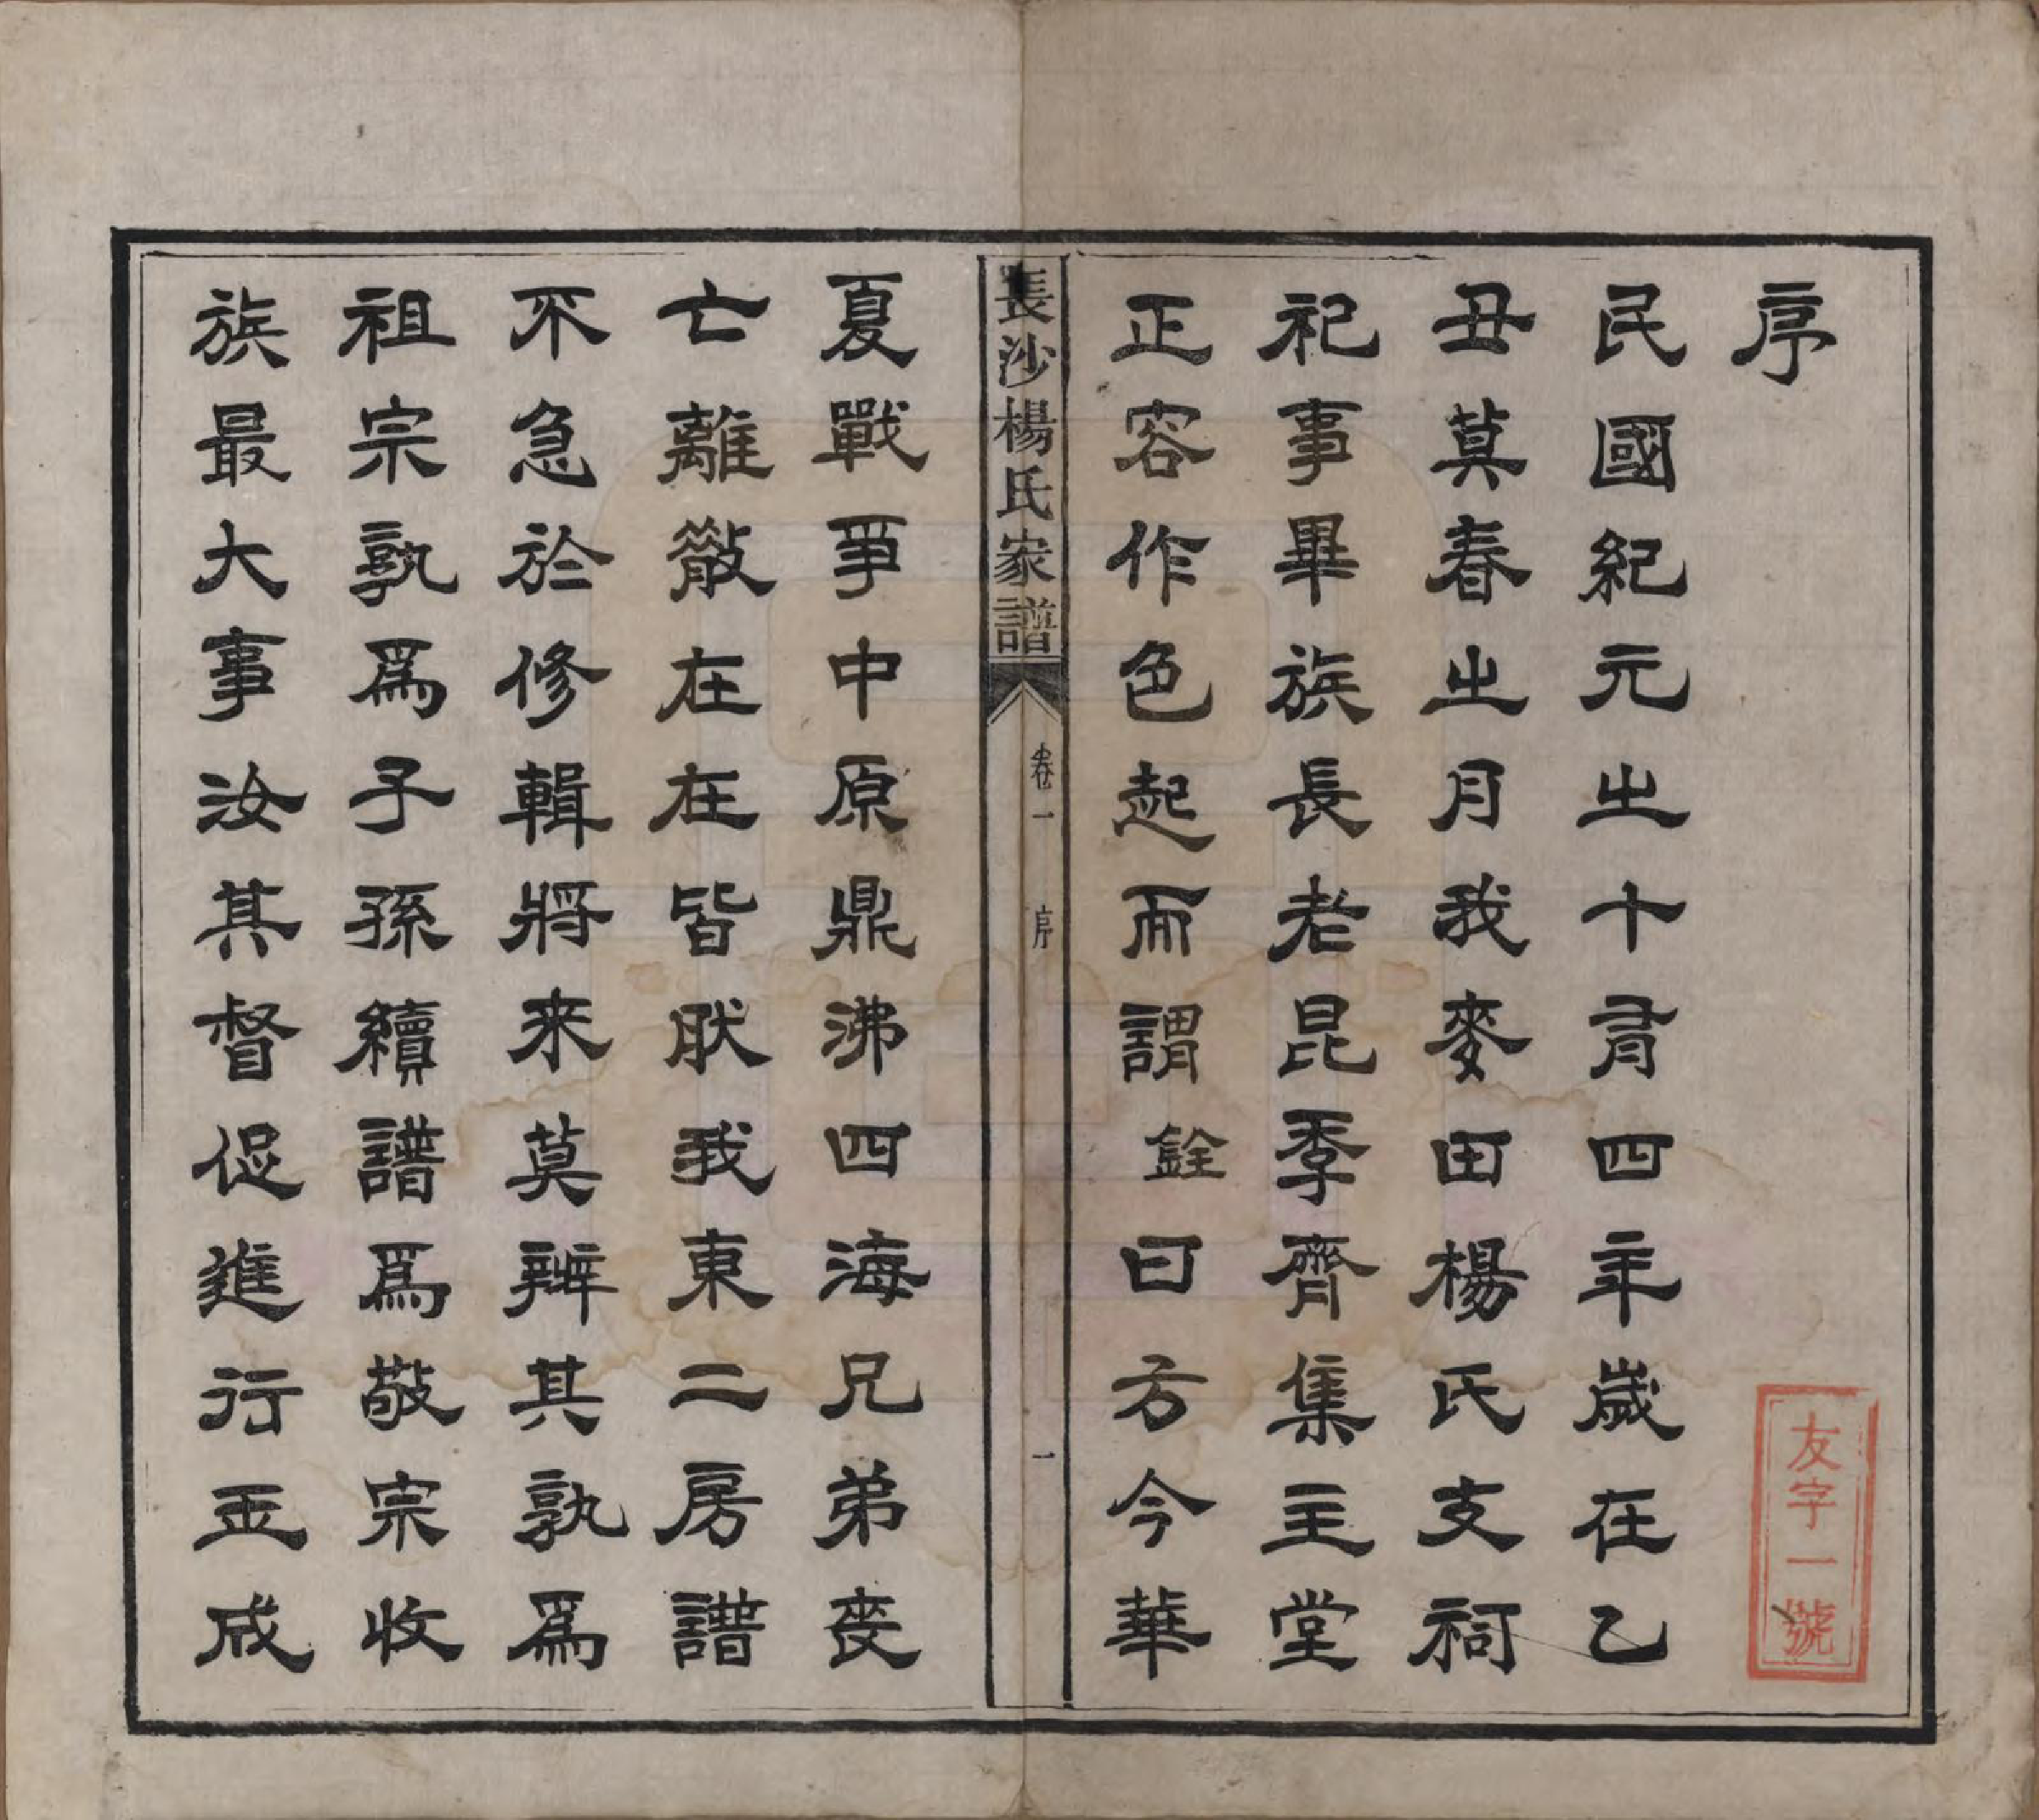 序
民國紀元之十有四年歲在乙
丑莫春之月我麥田楊氏支祠
祀事畢族長老昆季齊集主堂
正容作色起而謂銓曰方今華
長沙楊氏家譜
卷一
序
一
夏戰爭中原鼎沸四海兄弟喪
亡離散在在皆肰我東二房譜
不急於修輯將來莫辨其孰爲
祖宗孰爲子孫續譜爲敬宗收
族最大事汝其督促進行玉成
友字一號